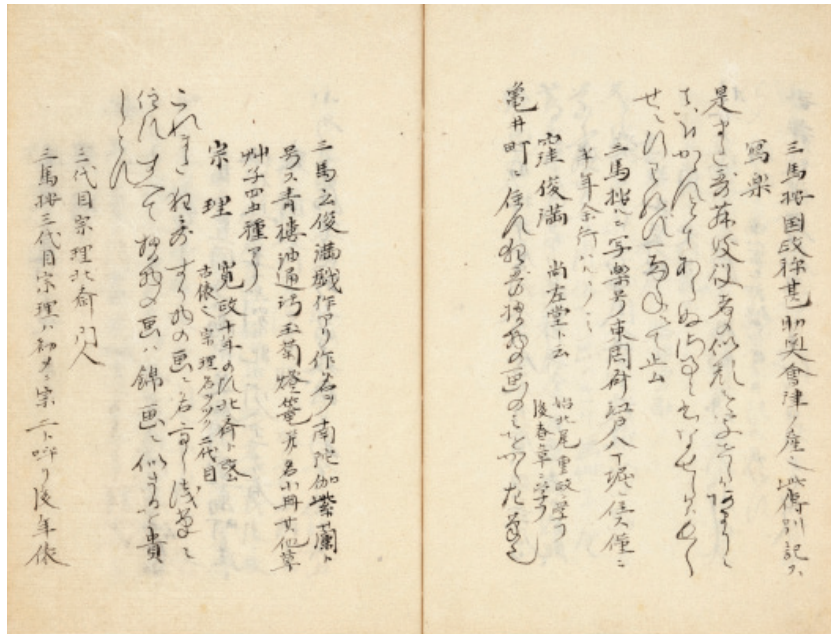 三馬按国政称甚助奥會津ノ産也此傳別記ス
写楽
是また哥舞妓役者の似顔をうつせしがあまりに
真を画かんとてあらぬさまにかきなせしかば長く
世に行われず一両年にて止ム
三馬按ルニ写楽号東周斎江戸八丁堀ニ住ス僅ニ
半年余行ハルヽノミ
窪俊満 尚左堂ト云
始北尾重政ニ学フ
後春章ニ学フ
亀井町ニ住ス狂哥摺物の画のみをかく左筆也
三馬云俊満戯作アリ作名ヲ南陀伽紫蘭ト
号ス青楼油通汚玉菊燈篭弁ノ名小冊其他草
艸子四五種アリ
宗理
寛政十年の比北斎ト改
古俵ヤ宗理名ヲツク二代目
これまた狂哥すり物の画に名高し浅草に
住ス すべて摺物の画ハ錦画に似ざるを貴
しとす
三代目宗理北斎門人
三馬按三代目宗理ハ初メニ宗二ト呼リ後年俵